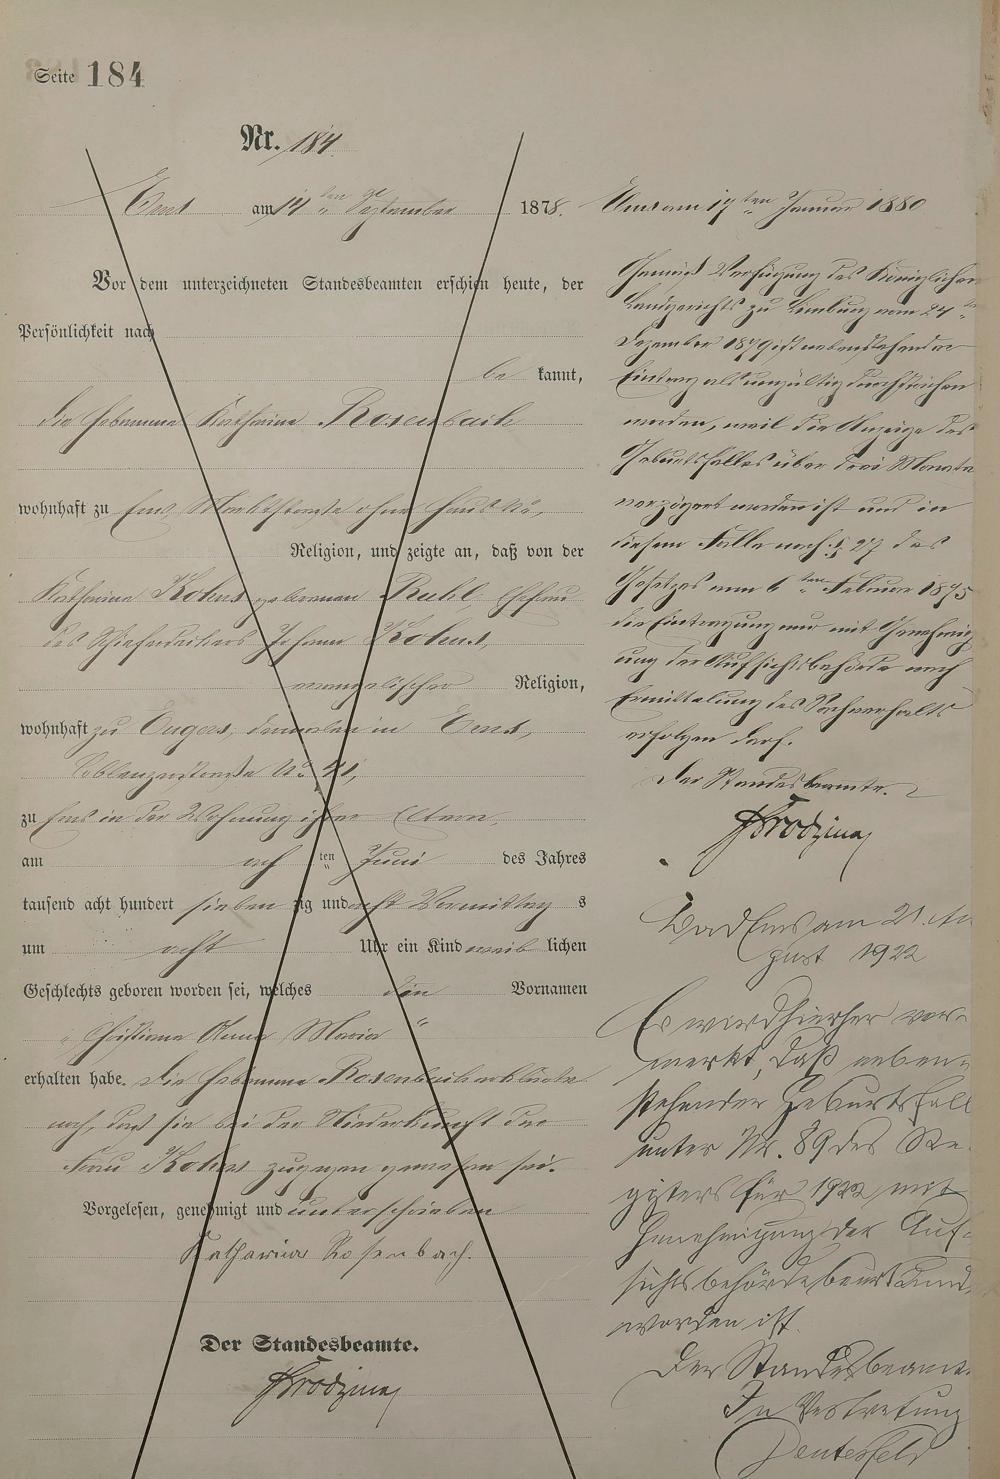 Seite 184
Nr. 184.
Ems am 14ten September 1878.
Vor dem unterzeichneten Standesbeamten erschien heute, der
Persönlichkeit nach
be kannt,
die Hebamme Katharina Rosenbach
wohnhaft zu Ems, Marktstraße ohne Haus No,
Religion, und zeigte an, daß von der
Katharina Kohns geborenen Ruhl, Ehefrau
des Schieferdeckers Johann Kohns,
evangelischer Religion,
wohnhaft zu Engers, dermalen in Ems,
Coblenzerstraße No 41,
zu Ems in der Wohnung ihrer Eltern,
am ach ten Juni des Jahres
tausend acht hundert sieben zig und acht Vormittag s
um acht Uhr ein Kind weib lichen
Geschlechts geboren worden sei, welches den Vornamen
„Christiane Anna Maria“
erhalten habe. Die Hebamme Rosenbach erklärte
noch, daß sie bei der Niederkunft der
Frau Kohns zugegen gewesen sei.
Vorgelesen, genehmigt und unterschrieben
Katharina Rosenbach.
Der Standesbeamte.
Ems am 17ten Januar 1880
Gemäß Verfügung des Königlichen
Landgerichts zu Limburg vom 24ten
Dezember 1879 ist nebenstehender
Eintrag als ungültig durchstrichen
worden, weil die Anzeige des
Geburtsfalles über drei Monate
verzögert worden ist und in
diesem Falle nach § 27 des
Gesetzes vom 6ten Februar 1875
die Eintragung nur mit Genehmig
ung der Aufsichtsbehörde nach
Ermittelung des Sachverhalts
erfolgen darf.
Der Standesbeamte.
Bad Ems am 21. Au
gust 1922
Es wird hierher ver-
merkt, daß neben-
stehender Geburtsfall
unter Nr. 89 des Re-
gisters für 1922 mit
Genehmigung der Auf-
sichtsbehörde beurkund.
worden ist.
Der Standesbeamte.
In Vertretung